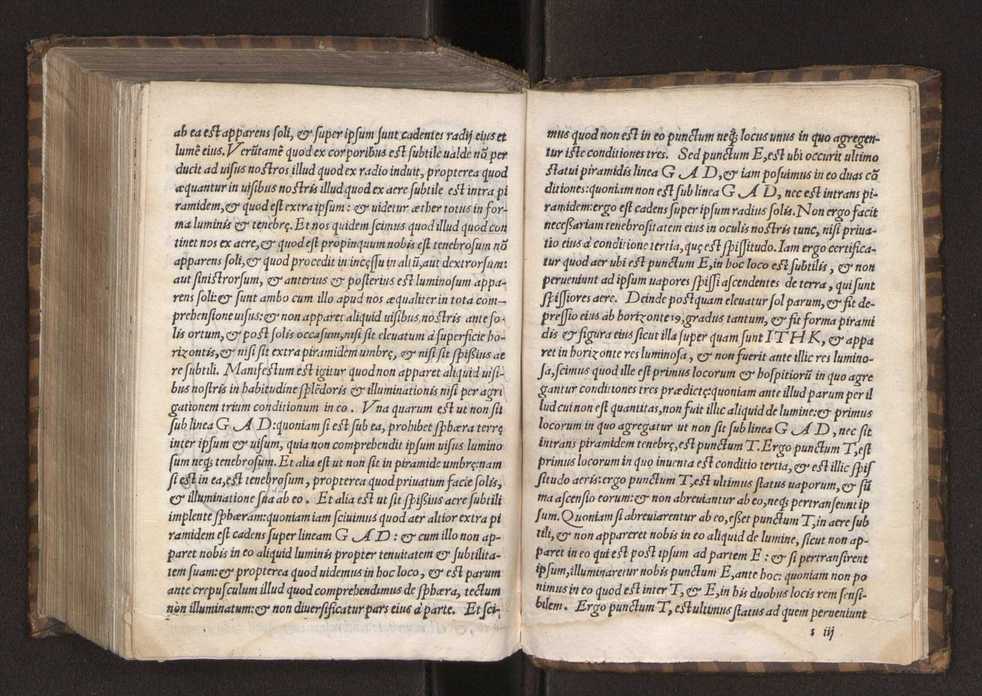 ab ea est apparens soli, & super ipsum sunt cadentes radij eius et
lumē eius. Verūtamē quod ex corporibus est subtile valde nō per
ducit ad uisus nostros illud quod ex radio induit, propterea quod
æquantur in uisibus nostris illud quod ex aere subtile est intra pi
ramidem, & quod est extra ipsum: & uidetur æther totus in for-
ma luminis & tenebrę. Et nos quidem scimus quod illud quod con
tinet nos ex aere, & quod est propinquum nobis est tenebrosum nō
apparens soli, & quod procedit in incęssu in altū, aut dextrorsum:
aut sinistrorsum, & anterius & posterius est luminosum appa-
rens soli: & sunt ambo cum illo apud nos æqualiter in tota com-
prehensione uisus: & non apparet aliquid uisibus nostris ante so-
lis ortum, & post solis occasum, nisi sit eleuatum à superficie ho-
rizontis, & nisi sit extra piramidem umbrę, & nisi sit spißius ae
re subtili. Manifestum est igitur quod non apparet aliquid uisi-
bus nostris in habitudine splēdoris & illuminationis nisi per agri
gationem trium conditionum in eo. Vna quarum est ut non sit
sub linea GAD: quoniam si est sub ea, prohibet sphæra terrę
inter ipsum & uisum, quia non comprehendit ipsum uisus lumino
sum neq; tenebrosum. Et alia est ut non sit in piramide umbrę: nam
si est in ea, est tenebrosum, propterea quod priuatum facie solis,
& illuminatione sua ab eo. Et alia est ut sit spißius aere subtili
implente sphæram: quoniam iam sciuimus quod aer altior extra pi
ramidem est cadens super lineam GAD: & cum illo non ap-
paret nobis in eo aliquid luminis propter tenuitatem & subtilita-
tem suam: & propterea quod uidemus in hoc loco, & est parum
ante crepusculum illud quod comprehendimus de sphæra, tectum
nòn illuminatum: & non diuersificatur pars eius à parte. Et sci-
mus quod non est in eo punctum neq; locus unus in quo agregen-
tur iste conditiones tres. Sed punctum E, est ubi occurit ultimo
statui piramidis linea GAD, & iam posuimus in eo duas cō
ditiones: quoniam non est sub linea GAD, nec est intrans pi-
ramidem: ergo est cadens super ipsum radius solis. Non ergo facit
neceßariam tenebrositatem eius in oculis nostris tunc, nisi priua-
tio eius à conditione tertia, quę est spißitudo. Iam ergo certifica-
tur quod aer ubi est punctum E, in hoc loco est subtilis, & non
perueniunt ad ipsum uapores spißi ascendentes de terra, qui sunt
spißiores aere. Deinde postquam eleuatur sol parum, & fit de-
preßio eius ab horizonte 19. gradus tantum, & fit forma pirami
dis & figura eius sicut illa super quam sunt ITHK, & appa
ret in horizonte res luminosa, & non fuerit ante illic res lumino-
sa, scimus quod ille est primus locorum & hospitiorū in quo agre
gantur conditiones tres prædictę: quoniam ante illud parum per il
lud cui non est quantitas, non fuit illic aliquid de lumine: & primus
locorum in quo agregatur ut non sit sub linea GAD, nec sit
intrans piramidem tenebrę, est punctum T. Ergo punctum T, est
primus locorum in quo inuenta est conditio tertia, & est illic spis
situdo aeris: ergo punctum T, est ultimus status uaporum, & sū
ma ascensio eorum: & non abreuiantur ab eo, neq; pertranseunt ip
sum. Quoniam si abreuiarentur ab eo, eßet punctum T, in aere sub
tili, & non appareret nobis in eo aliquid de lumine, sicut non ap-
paret in eo qui est post ipsum ad partem E: & si pertransirent
ipsum, illuminaretur nobis punctum E, ante hoc: quoniam non po
nimus in eo quod est inter T, & E, in his duobus locis rem sensi-
bilem. Ergo punctum T, est ultimus status ad quem perueniunt
s iij